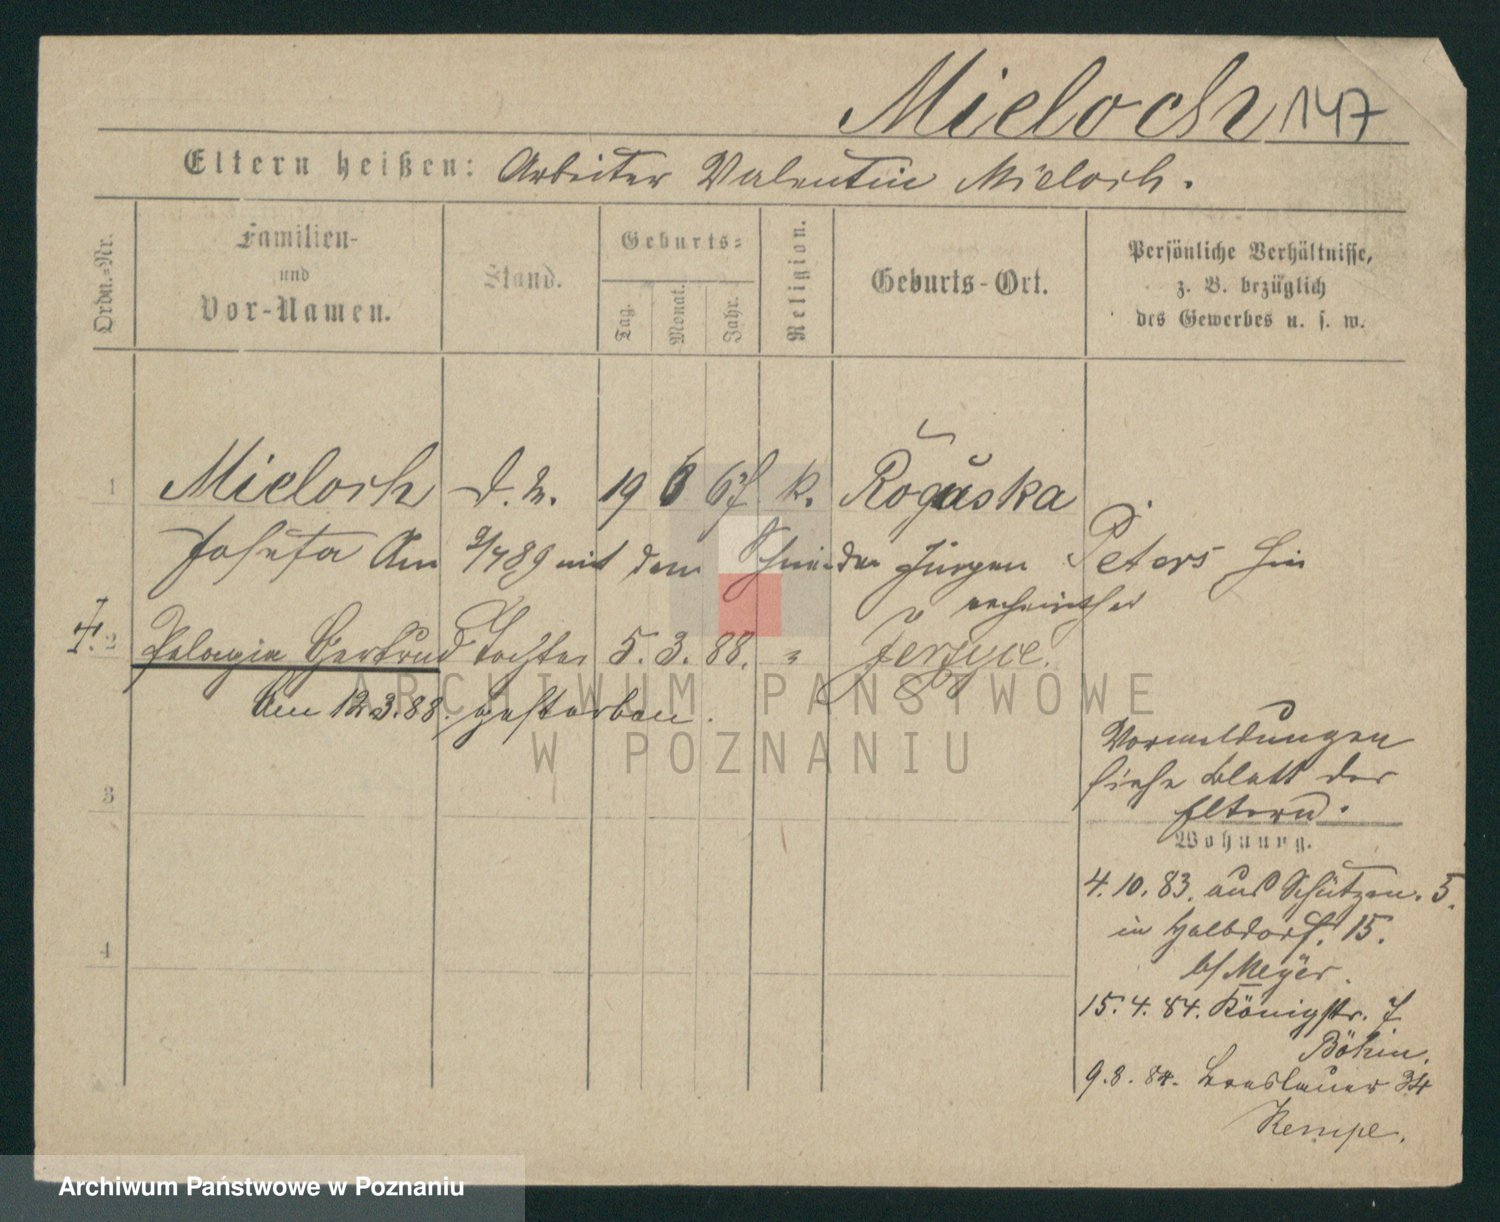 Mieloch 147
Eltern heißen: Arbeiter Valentin Mieloch.
Ordn.=Nr.
Familien-
und
Vor-Namen.
Stand.
Geburts=
Tag.
Monat.
Jahr.
Religion.
Geburts-Ort.
Persönliche Verhältnisse,
z. B. bezüglich
des Gewerbes u. s. w.
1 Mieloch 19 6 67 k.
Josefa Am 2/7 89 mit dem Schneider Jürgen Peters hier
verheirathet
2 Pelagia Gertrud Tochter 5. 3. 88. " Jersyce.
Am 12.3.88. gestorben.
Vormeldungen
siehe Blatt der
Eltern.
3
Wohnung.
4. 10. 83. aus Schützen. 5.
in Halbdorf. 15.
b/ Meyer.
4
15. 4. 84. Königstr. 7
Böhm.
9. 8. 84. Breslauer 34
Kempe.
ARCHIWUM PAŃSTWOWE
W POZNANIU
Archiwum Państwowe w Poznaniu